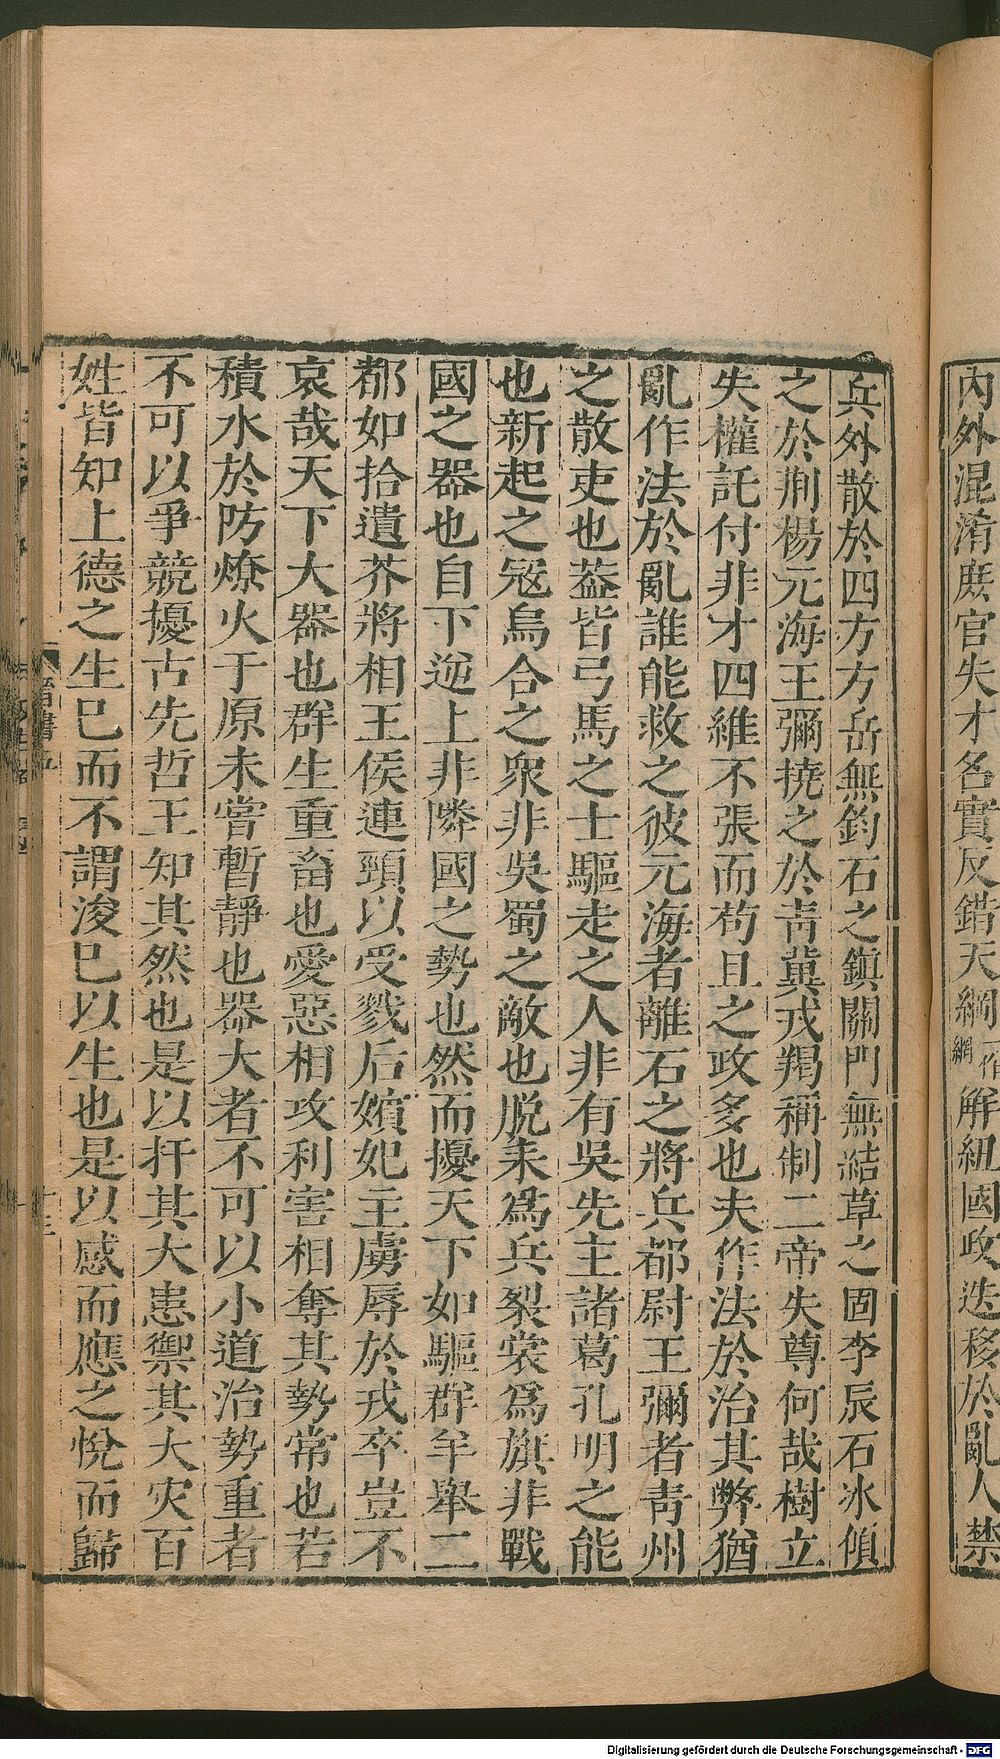 內外混淆庶官失才名實反錯天綱一作網解紐國政迭移於亂人禁
兵外散於四方方岳無鈞石之鎮關門無結草之固李辰石冰傾
之於荆楊元海王彌撓之於青冀戎羯稱制二帝失尊何哉樹立
失權託付非才四維不張而苟且之政多也夫作法於治其弊猶
亂作法於亂誰能救之彼元海者離石之將兵都尉王彌者青州
之散吏也葢皆弓馬之士驅走之人非有吳先主諸葛孔明之能
也新起之寇烏合之衆非吳蜀之敵也脱耒爲兵裂裳爲旗非戰
國之器也自下逆上非隣國之勢也然而擾天下如驅群羊舉二
都如拾遺芥將相王侯連頸以受戮后嬪妃主虜辱於戎卒豈不
哀哉天下大器也群生重畜也愛惡相攻利害相奪其勢常也若
積水於防燎火于原未嘗暫靜也器大者不可以小道治勢重者
不可以爭競擾古先哲王知其然也是以扞其大患禦其大灾百
姓皆知上德之生巳而不謂浚巳以生也是以感而應之悅而歸
晉書五
Digitalisierung gefördert durch die Deutsche Forschungsgemeinschaft - DFG